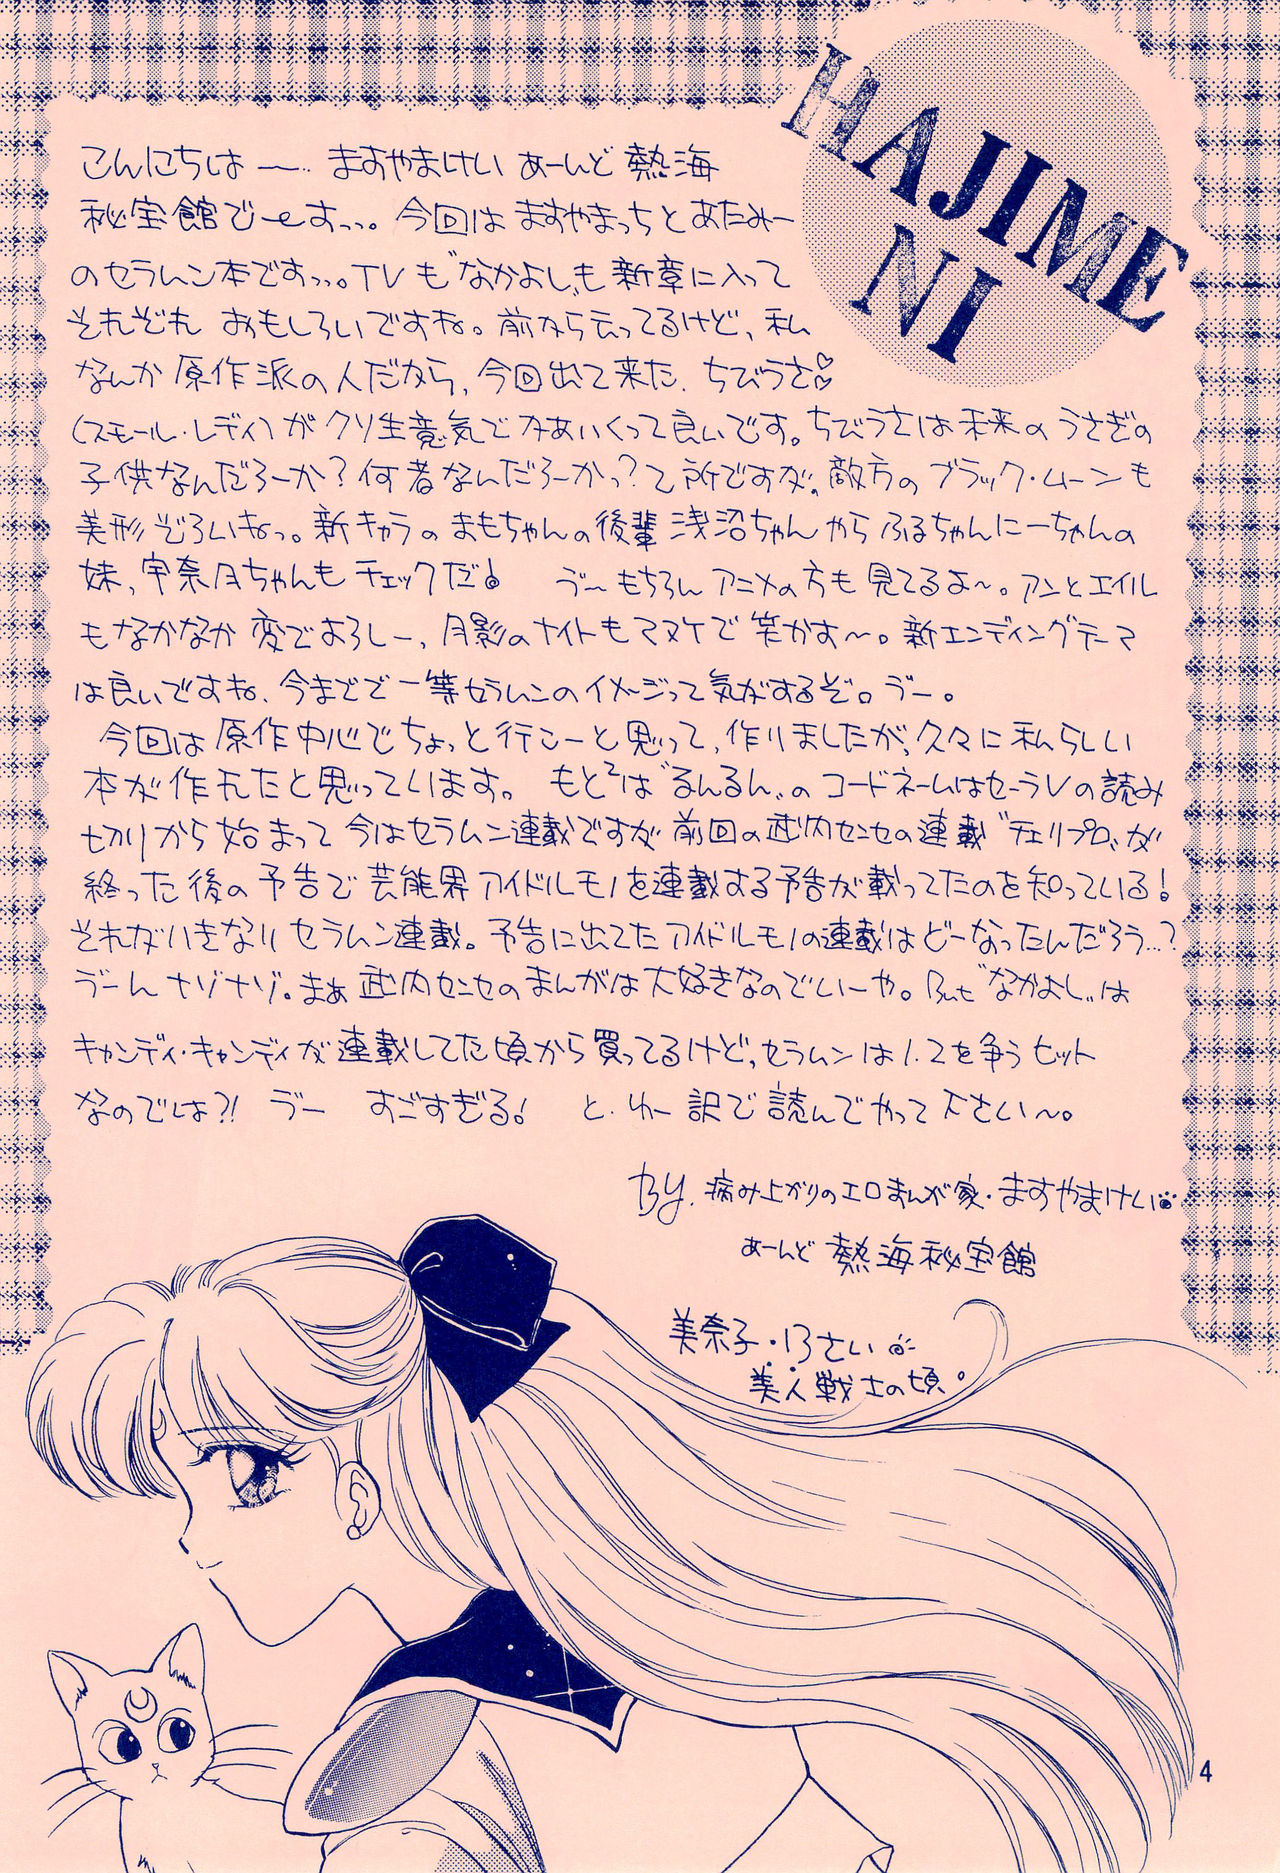 HAJIME
NI
こんにちは〜… ますやまけい あーんど 熱海
秘宝館でーすっっ。今回は ますやまっちと あたみー
のセラムン本ですっっ。TVも〝なかよし〟も 新章に入って
それぞれ おもしろいですね。前から云ってるけど、私
なんか 原作派の人だから、今回出て来た、ちびうさ♡♡
(スモール・レディ)が クソ生意気で かあいくって良いです。ちびうさは未来の うさぎの
子供なんだろーか?何者なんだろーかっ?て所ですが。敵方の ブラック・ムーンも
美形ぞろいねっ。新キャラの まもちゃんの後輩 浅沼ちゃんやら ふるちゃんにーちゃんの
妹、宇奈月ちゃんも チェックだ! う゛〜 もちろん アニメの方も 見てるよ〜。アンとエイル
もなかなか 変でよろしー、月影のナイトもマヌケで 笑かす〜。新エンディングテーマ
は良いですね、今までで 一等セラムンのイメージって気がするぞ。う゛ー。
今回は 原作中心でちょっと行こーと思って、作りましたが、久々に 私らしい
本が 作れたと思っています。 もと²は〝るんるん〟の コードネームはセーラVの読み
切りから始まって 今はセラムン連載ですが 前回の武内センセの連載〝チェリプロ〟が
終った後の予告で 芸能界アイドルモノを連載する予告が載ってたのを知っている!
それがいきなり セラムン連載。予告に出てたアイドルモノの連載はどーなったんだろう…?
う゛ーん ナゾナゾ。まぁ 武内センセのまんがは大好きなのでいーや。But〝なかよし〟は
キャンディ・キャンディが連載してた頃から買ってるけど、セラムンは1.2を争うヒット
なのでは?! う゛ー すごすぎる! と、ゆー訳で 読んでやって下さい〜。
By. 病み上がりのエロまんが家・ますやまけい
あーんど 熱海秘宝館
美奈子・13さい
美人戦士の頃。
4